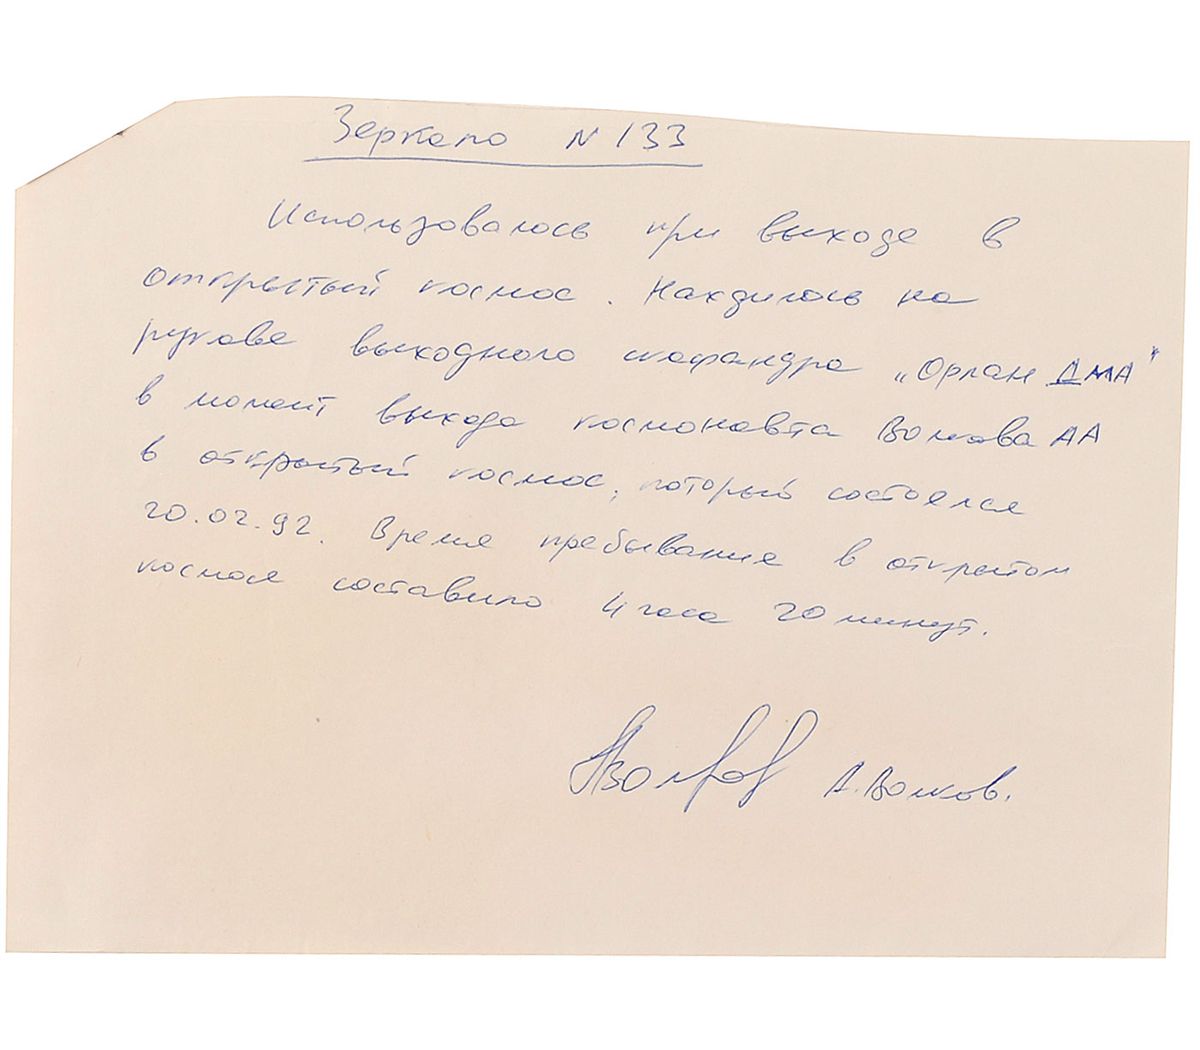 Зеркало N 133
Использовалось при выходе в
открытый космос. Находилось на
рукаве выходного скафандра „Орлан ДМА"
в момент выхода космонавта Волкова АА
в открытый космос, который состоялся
20.02.92. Время пребывания в открытом
космосе составило 4 часа 20 минут.
Волков А. Волков.